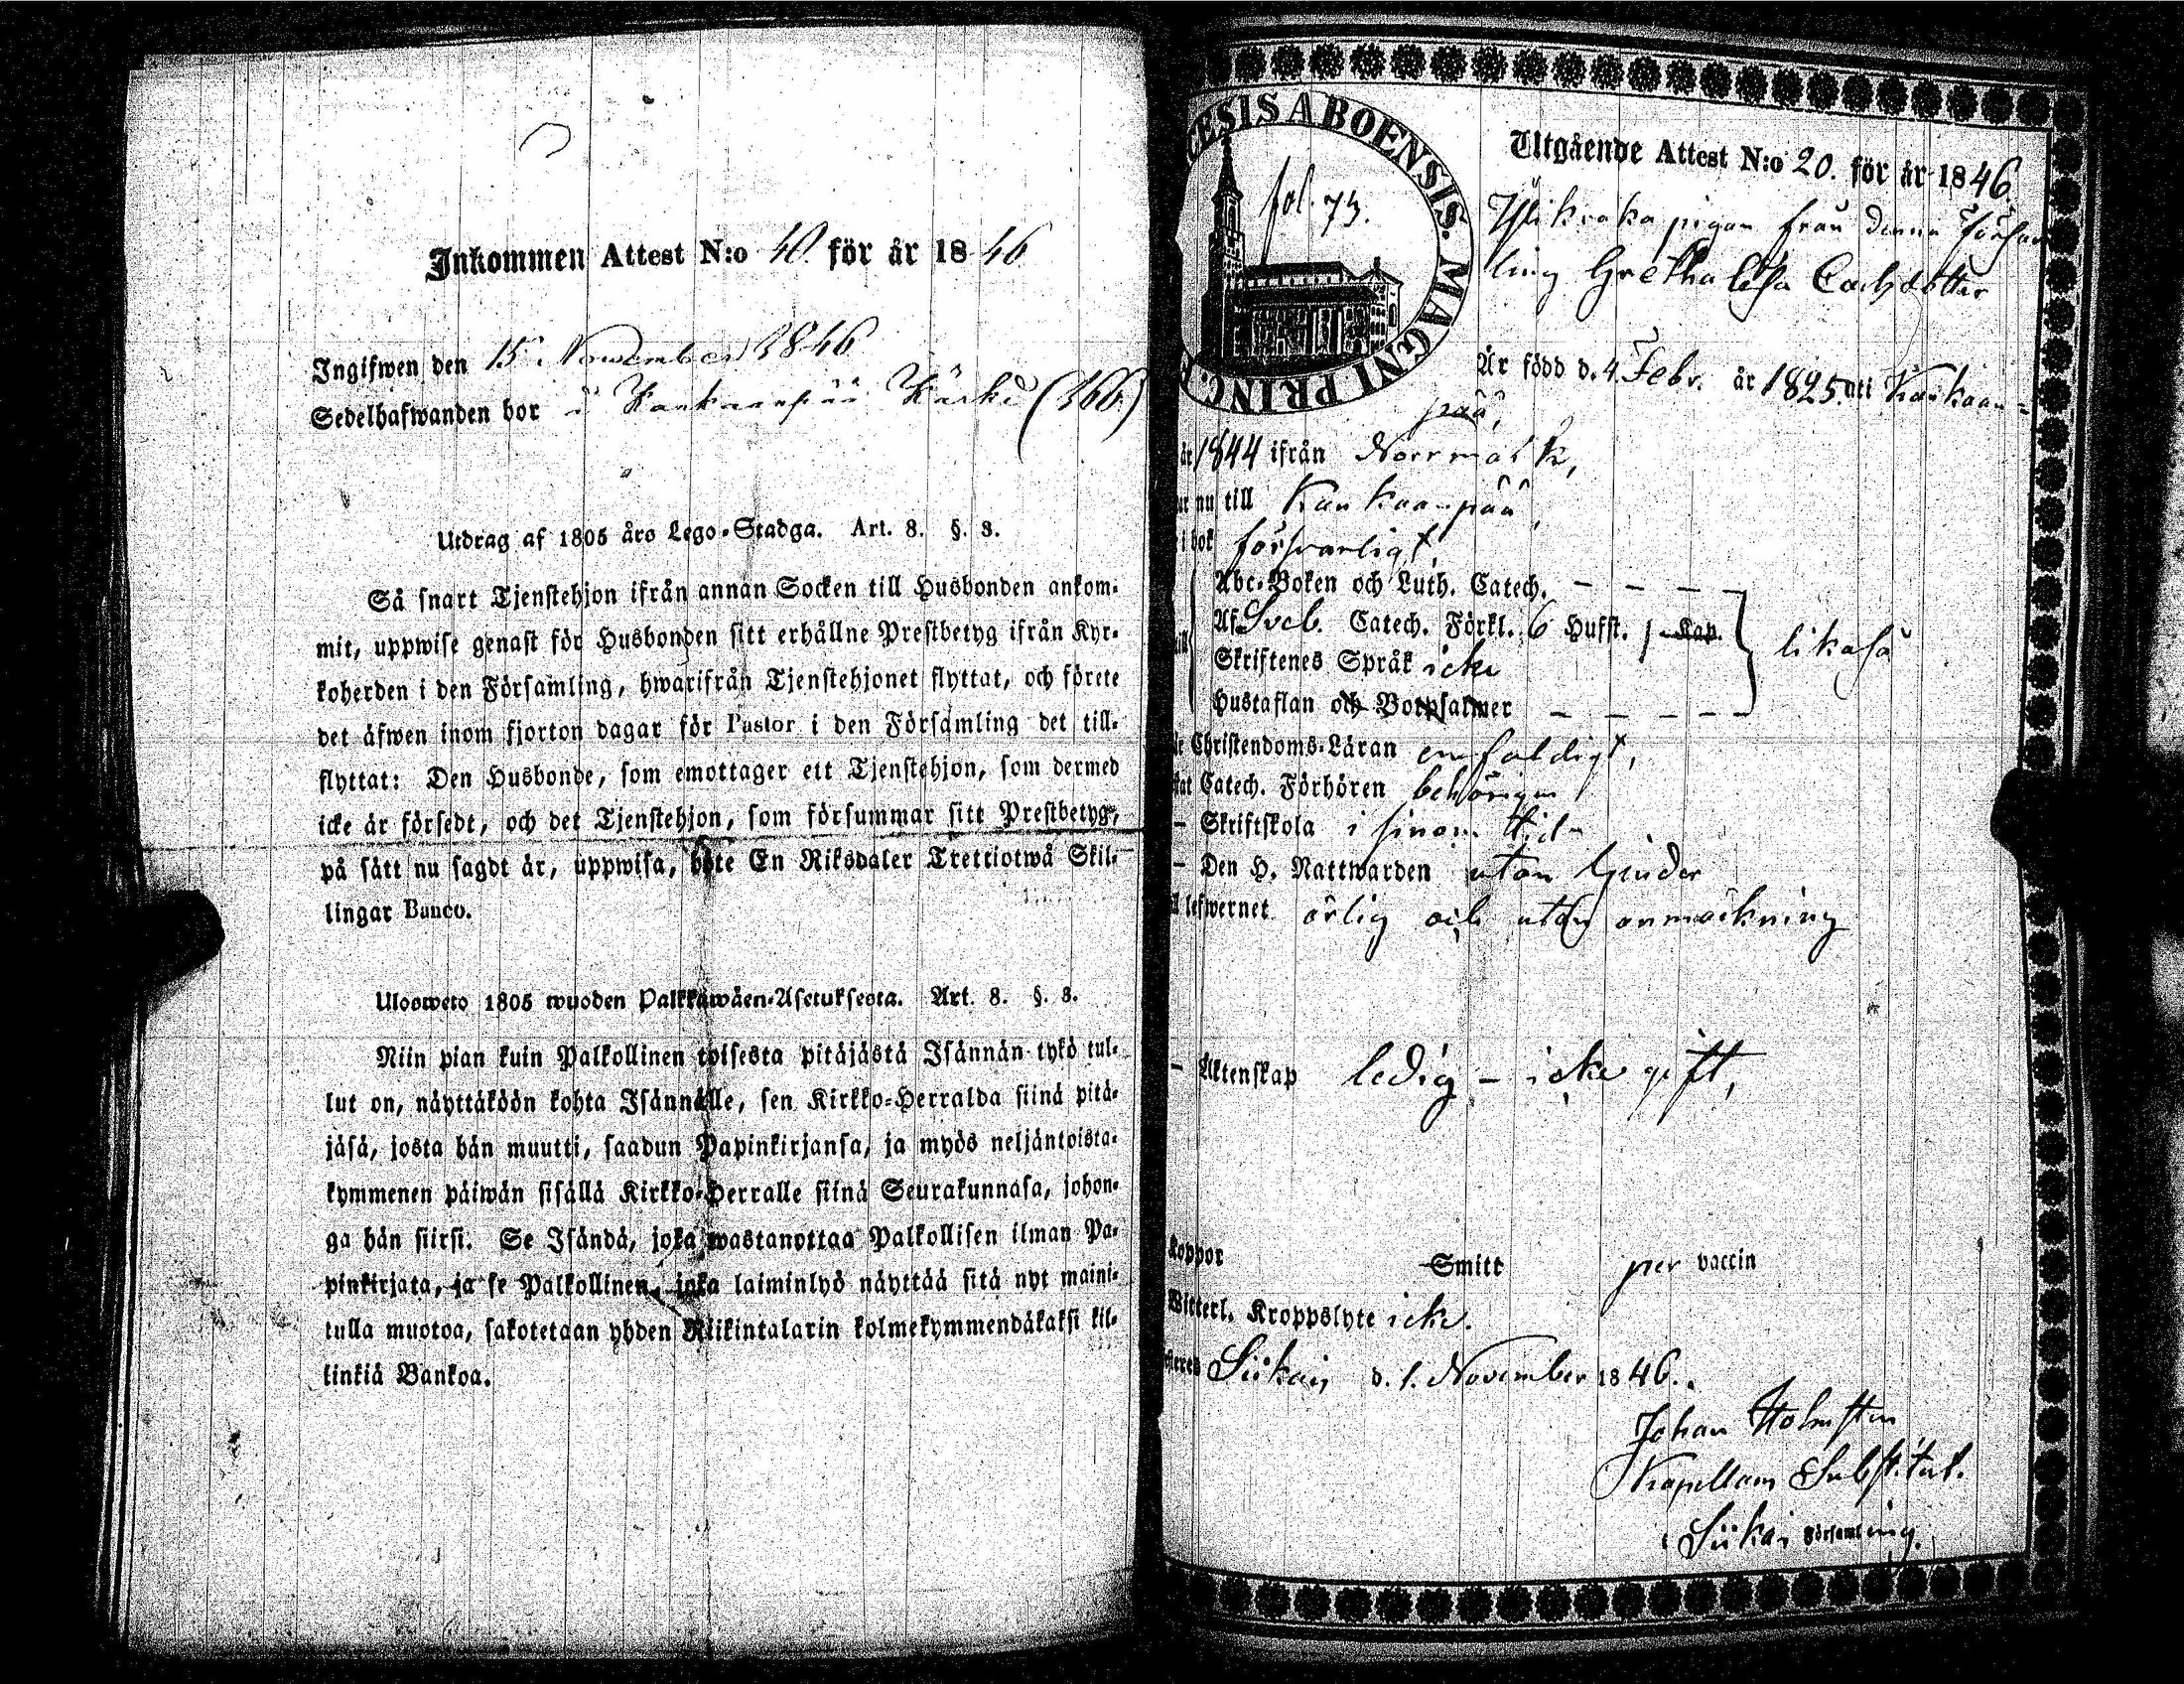 Inkommen Attest N:o 40. för år 1846
Ingifwen den 15. November 1846
Sedelhafwanden bor i Kankaanpää Karhi (166)
Utdrag af 1805 års Lego-Stadga. Art. 8. §. 3.
Så snart Tjenstehjon ifrån annan Socken till Husbonden ankom-
mit, uppwise genast för Husbonden sitt erhållne Prestbetyg ifrån Kyr-
koherden i den Församling, hwarifrån Tjenstehjonet flyttat, och förete
det äfwen inom fjorton dagar för Pastor i den Församling det till-
flyttat: Den Husbonde, som emottager ett Tjenstehjon, som dermed
icke är försedt, och det Tjenstehjon, som försummar sitt Prestbetyg,
på sätt nu sagdt är, uppwisa, böte En Riksdaler Trettiotwå Skil-
lingar Banco.
Ulosweto 1805 wuoden Palkkawäen-Asetuksesta. Art. 8. §. 3.
Niin pian kuin Palkollinen toisesta pitäjästä Isännän tykö tul-
lut on, näyttäköön kohta Isännälle, sen Kirkko-Herralda siinä pitä-
jäsä, josta hän muutti, saadun Papinkirjansa, ja myös neljäntoista-
kymmenen päiwän sisällä Kirkko-Herralle siinä Seurakunnasa, johon-
ga hän siirsi. Se Isändä, joka wastanottaa Palkollisen ilman Pa-
pinkirjata, ja se Palkollinen, joka laiminlyö näyttää sitä nyt maini-
tulla muotoa, sakotetaan yhden Riikintalarin kolmekymmendäkaksi kil-
linkiä Bankoa.
CESIS ABOENSIS. MAGNI PRINC.
fol. 73.
Utgående Attest N:o 20. för år 1846.
pigan från denna Försam
ling Gretha Lisa Carlsdotter
Är född d. 4. Febr. år 1825. uti Kankaan=
pää,
år 1844 ifrån Norrmark,
nu till Kankaanpää,
i bok försvarligt,
Abc-Boken och Luth. Catech. – – – –
Af Sveb. Catech. Förkl. 6 Hufst. Kap.
likaså
Skriftenes Språk icke
Hustaflan och Botpsalmer – – – – –
Christendoms-Läran enfaldigt,
Catech. Förhören behörigen
– Skriftskola i sinom tid
– Den H. Nattwarden utan hinder
lefwernet ärlig och utan anmärkning
– Äktenskap ledig – icke gift,
Koppor Smitt per vaccin
Witterl. Kroppslyte icke.
Siikais d. 1. November 1846.
Johan Holmsten
Kapellans Substitut.
i Siikais Församling.